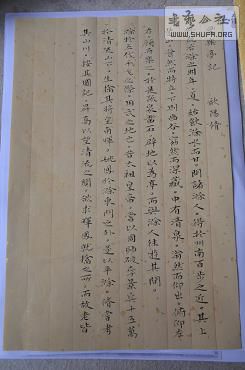 书艺公社
WWW.SHUFA.ORG
樂亭記 歐陽脩
治滁之明年夏始飲滁水而甘問諸滁人得於州南百步之近其上
聳然而特立下則幽谷窈然而深藏中有清泉滃然而仰出俯仰左
右顧而樂之於是疏泉鑿石辟地以為亭而與滁人往遊其間
滁於五代干戈之際用武之地也昔太祖皇帝嘗以周師破李景兵十五萬
於清流山下生擒其將皇甫暉姚鳳於滁東門之外遂以平滁脩嘗考
其山川按其圖記升高以望清流之關欲求暉鳳就擒之所而故老皆